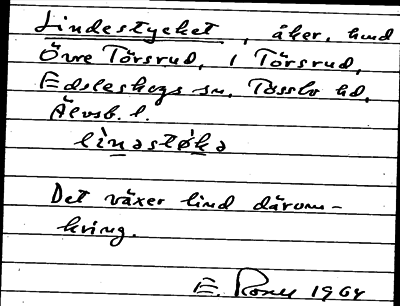 Lindestycket, åker, hmd
Övre Törsrud, i Törsrud,
Edsleskogs sn, Tössbo hd,
Älvsb. l.
lìnəstø̀kə
Det växer lind därom-
kring.
E. 1964